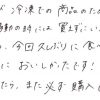 ド冷凍での商品のため
動の時には買えずにい
、今回久しぶりに食べ
においしかったです！
たら、また必ず購入